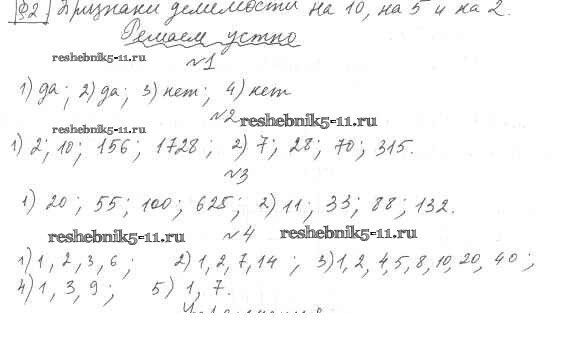 §2 Признаки делимости на 10, на 5 и на 2.
Решаем устно
reshebnik5-11.ru
№1
1) да; 2) да; 3) нет; 4) нет
№2 reshebnik5-11.ru
reshebnik5-11.ru
1) 2; 10; 156; 1728; 2) 7; 28; 70; 315.
№3
1) 20; 55; 100; 625; 2) 11; 33; 88; 132.
reshebnik5-11.ru №4 reshebnik5-11.ru
1) 1, 2, 3, 6; 2) 1, 2, 7, 14; 3) 1, 2, 4, 5, 8, 10, 20, 40;
4) 1, 3, 9; 5) 1, 7.